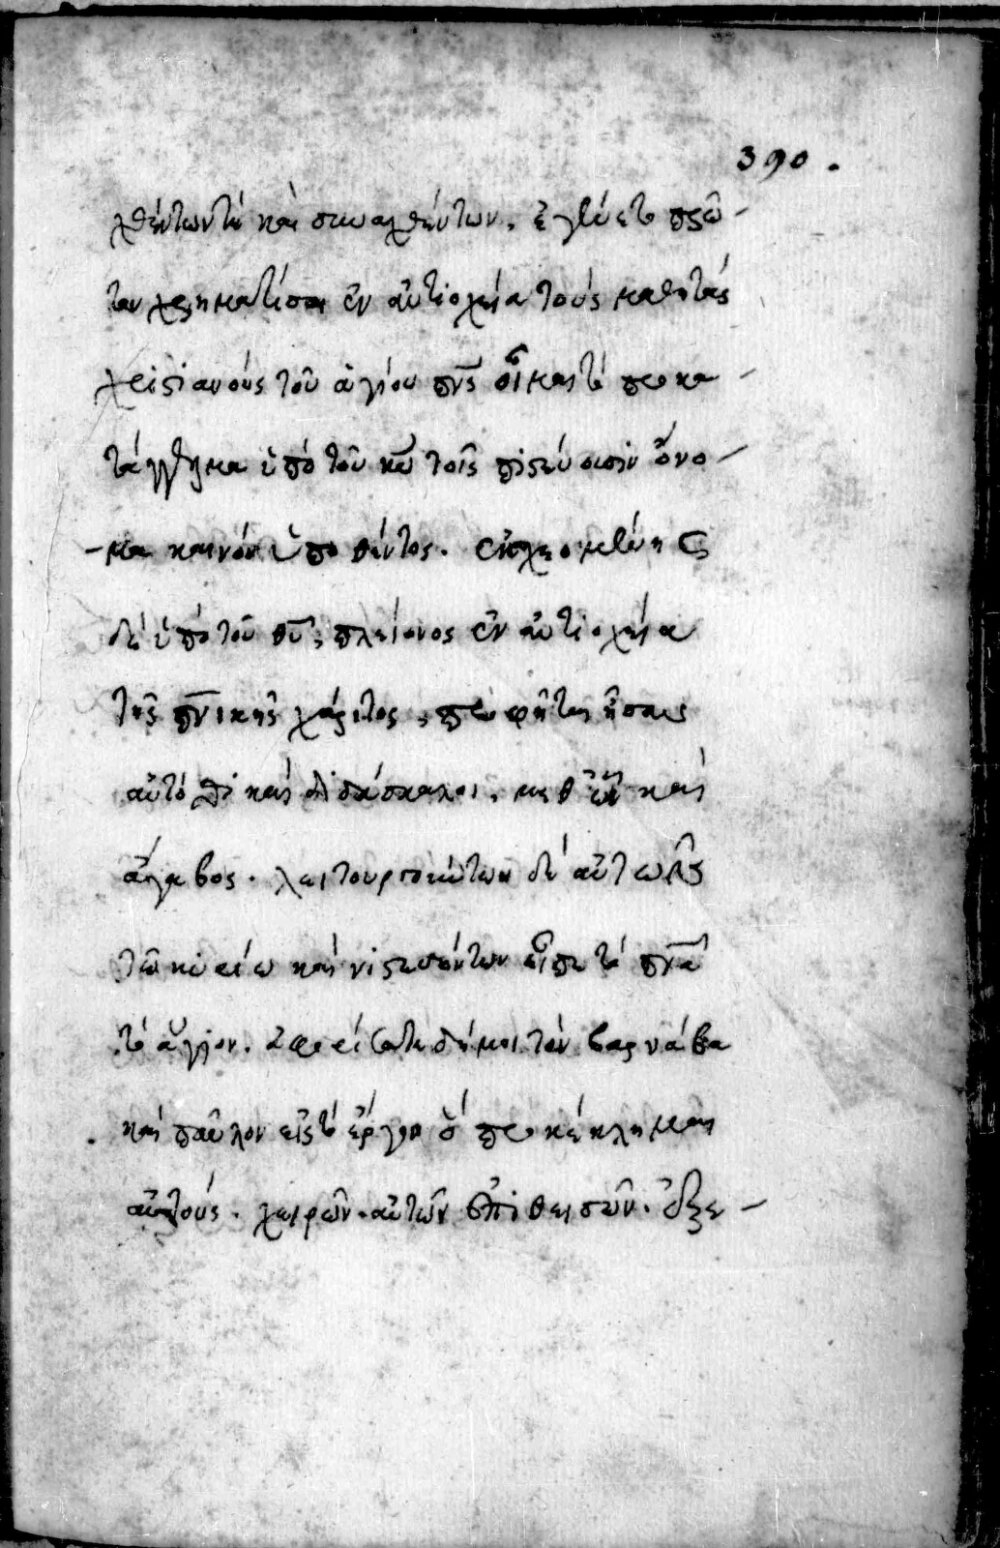 390.
χθέντων τὲ καὶ συναχθέντων. ἐγένετο πρῶ-
τον χρηματίσαι ἐν ἀντιοχεία τοὺς μαθητὰς
χριστιανοὺς τοῦ ἁγίου πνς̅ τὸ προκα-
τάγγελμα ὑπὸ τοῦ κῦ τοῖς πιστεύουσιν ὄνο-
-μα καινὸν ὑποθέντος. ἐκχεομένης
δὲ ὑπὸ τοῦ θῦ, πλείονος ἐν ἀντιοχεία
τῆς πν̅ικῆς χάριτος, προφῆται ἦσαν
αὐτόθι καὶ διδάσκαλοι. μεθ ὧν καὶ
ἄγαβος. λειτουργούντων δὲ αὐτῶν
τῶ κυρίω καὶ νηστευόντων εἶπε τὸ πν̅α
τὸ ἅγιον. ἀφορίσατε δή μοι τὸν βαρνάβα
καὶ παῦλον εἰς τὸ ἔργον ὃ προκέκλημαι
αὐτούς. χειρῶν αὐτῶν ἐπιθεισῶν. ἐξε-